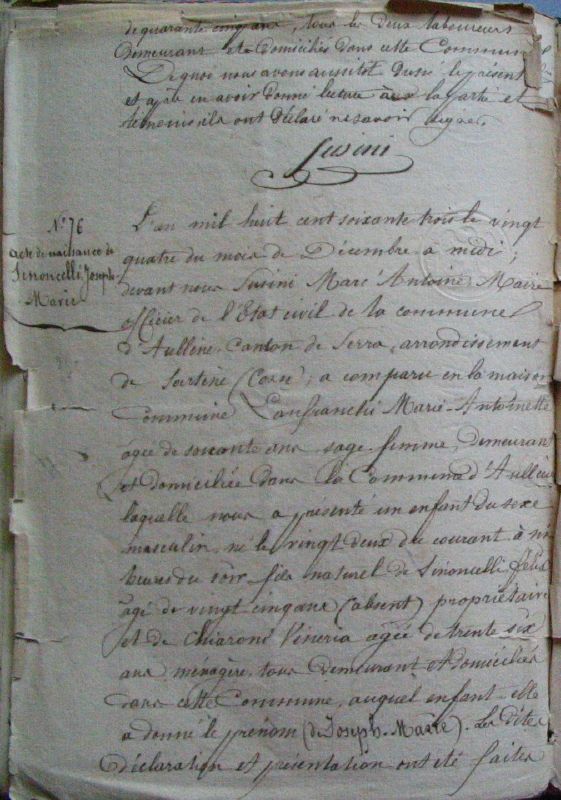 de quarante cinq ans, tous les deux laboureurs
Demeurans et domiciliés dans cette Commune
De quoi nous avons aussitôt Dressé le présent
et après en avoir donné lecture aux la partie et
témoins ils ont Déclaré ne savoir signer.
Susini
N.° 76
acte de naissance de
Simoncelli Joseph-
Marie
L'an mil huit cent soixante trois le vingt
quatre du mois de Décembre à midi,
devant nous Susini Marc Antoine, Maire
officier de l'Etat civil de la commune
d'Aullène, Canton de Serra, arrondissement
de Sartène (Corse), a comparu en la maison
Commune Lanfranchi Marie-Antoinette
âgée de soixante ans sage-femme, Demeurant
et domiciliée dans la Commune d'Aullène
laquelle nous a présenté un enfant du sexe
masculin, né le vingt deux du courant à
heures du soir fils naturel de Simoncelli félix
âgé de vingt cinq ans (absent) propriétaire
et de Chiaroni Véneria agée de trente six
ans, ménagère, tous Demeurant et domiciliés
dans cette Commune, auquel enfant elle
a donné le prénom (de Joseph-Marie). Les dites
Déclaration et présentation ont été faites